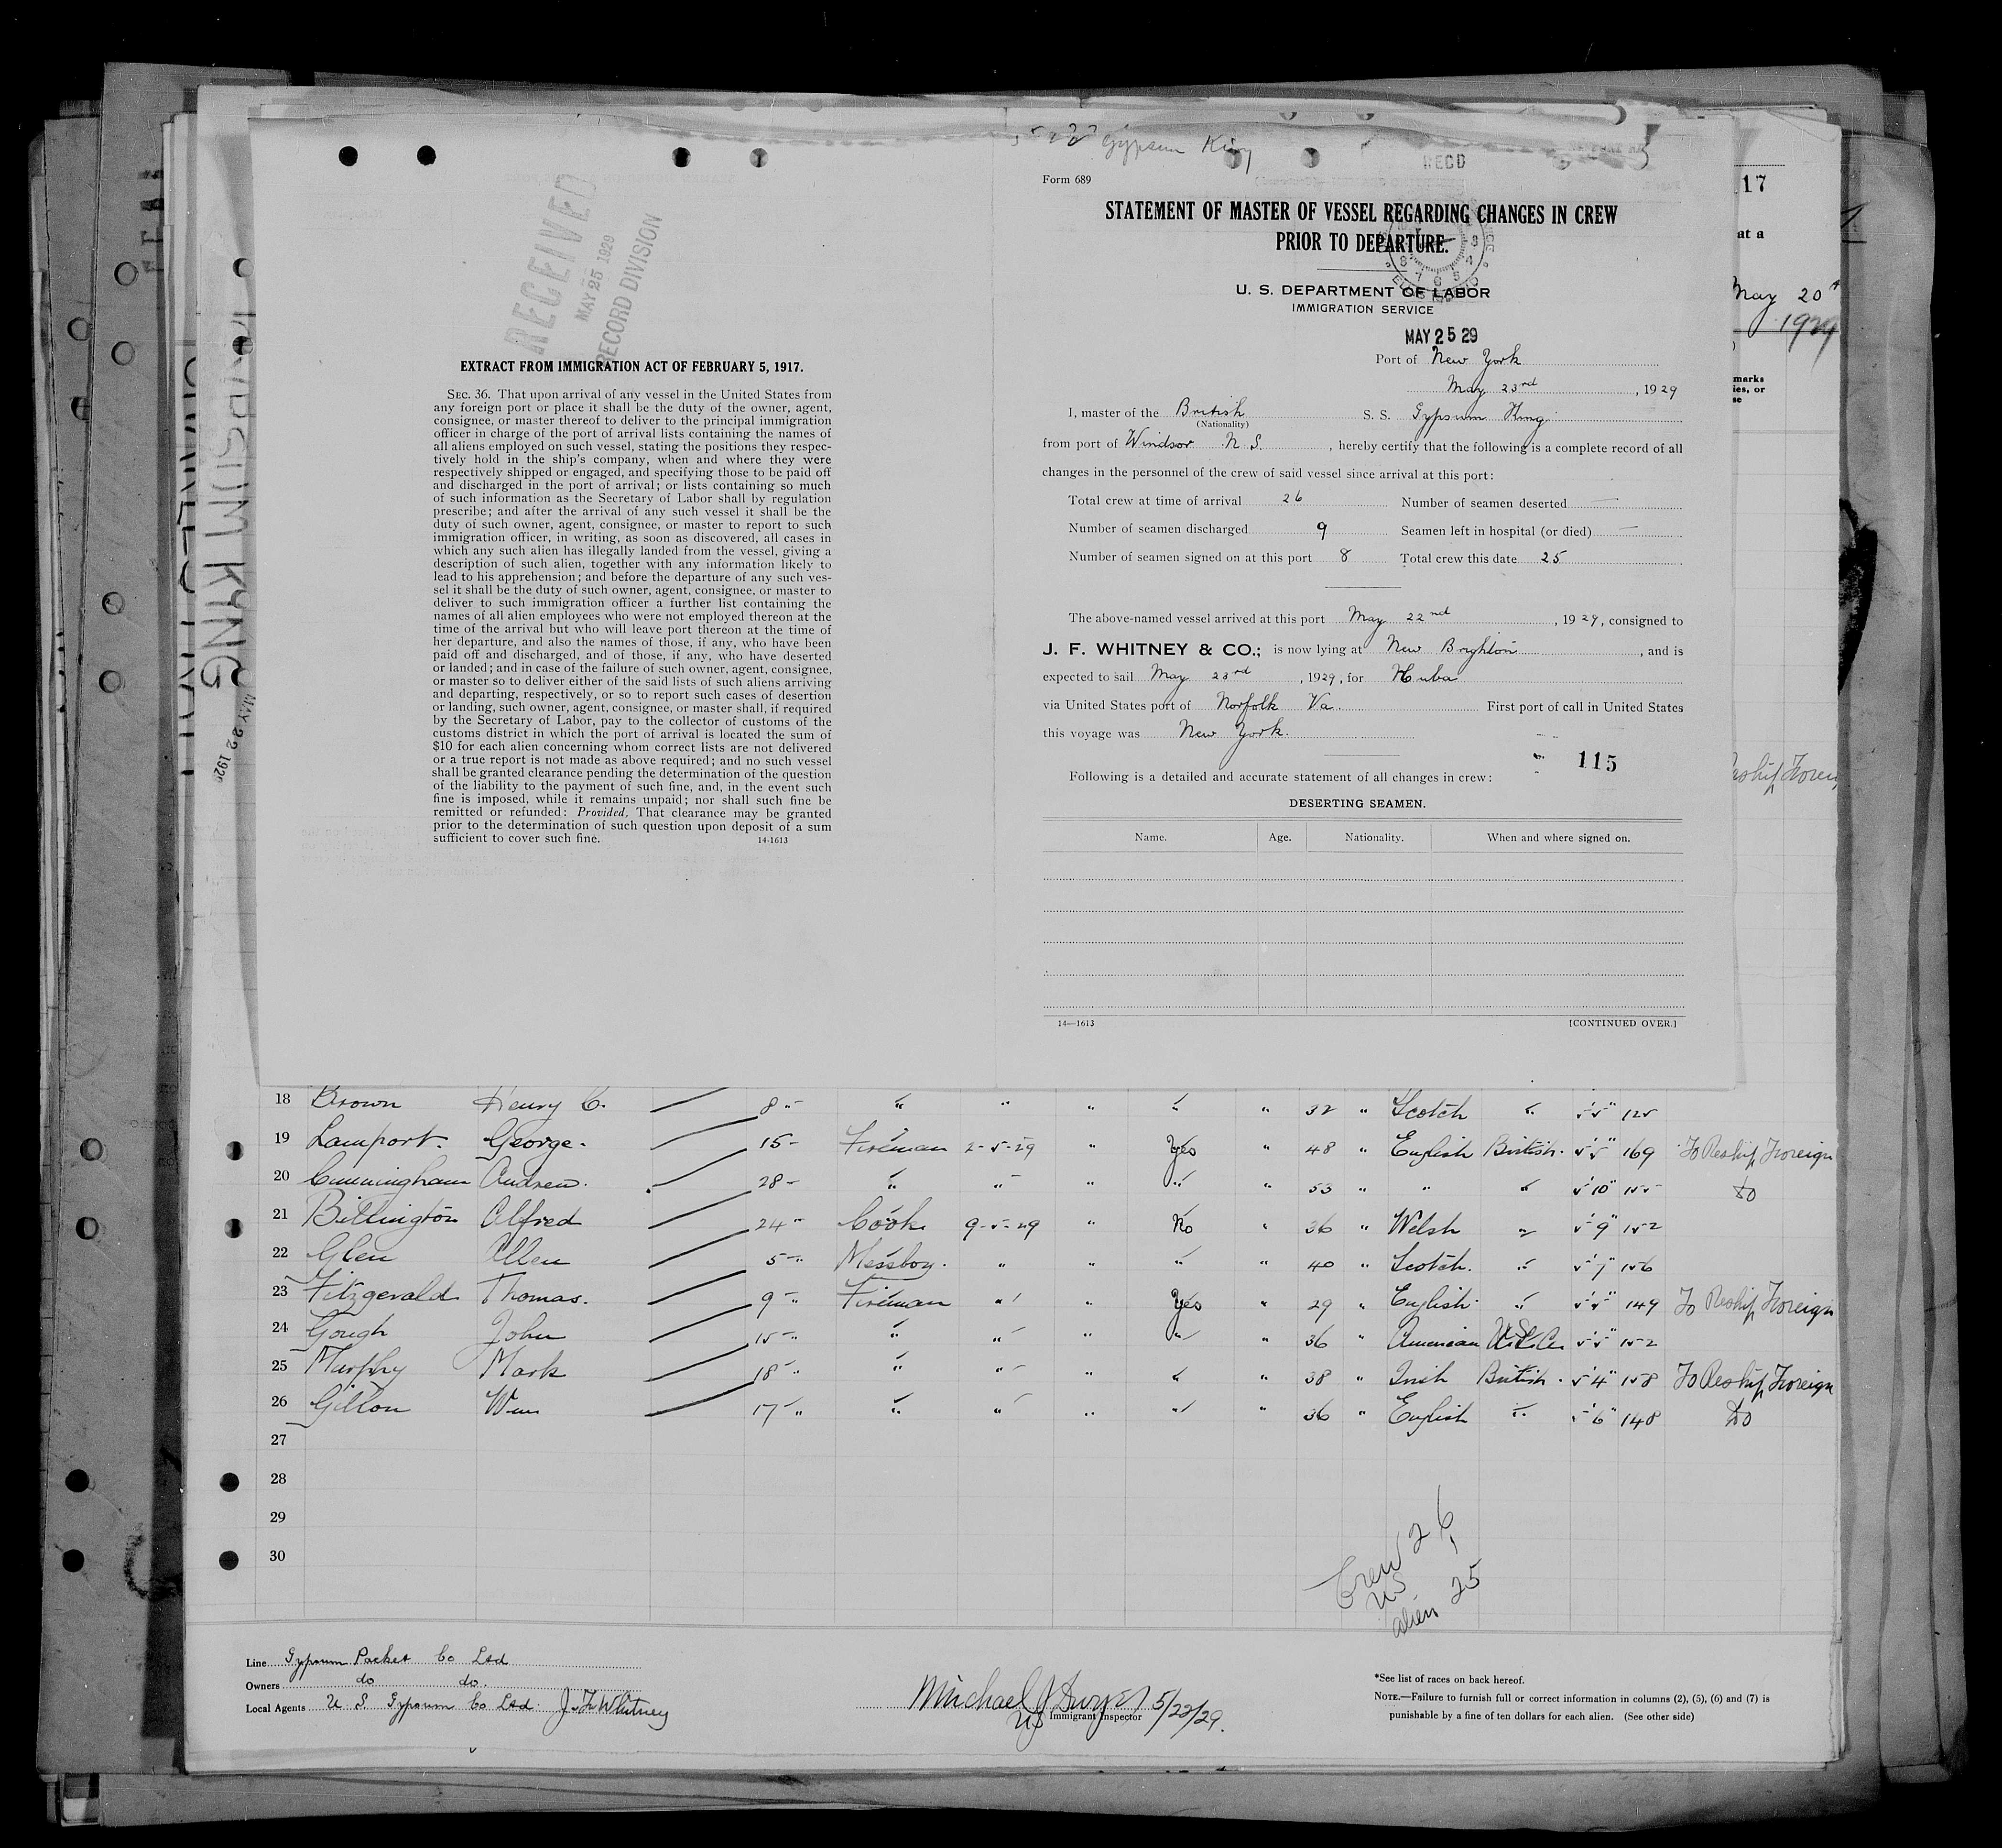 5-22 Gypsum King
RECEIVED
MAY 25 1929
RECORD DIVISION
EXTRACT FROM IMMIGRATION ACT OF FEBRUARY 5, 1917.
SEC. 36. That upon arrival of any vessel in the United States from
any foreign port or place it shall be the duty of the owner, agent,
consignee, or master thereof to deliver to the principal immigration
officer in charge of the port of arrival lists containing the names of
all aliens employed on such vessel, stating the positions they respec-
tively hold in the ship's company, when and where they were
respectively shipped or engaged, and specifying those to be paid off
and discharged in the port of arrival; or lists containing so much
of such information as the Secretary of Labor shall by regulation
prescribe; and after the arrival of any such vessel it shall be the
duty of such owner, agent, consignee, or master to report to such
immigration officer, in writing, as soon as discovered, all cases in
which any such alien has illegally landed from the vessel, giving a
description of such alien, together with any information likely to
lead to his apprehension; and before the departure of any such ves-
sel it shall be the duty of such owner, agent, consignee, or master to
deliver to such immigration officer a further list containing the
names of all alien employees who were not employed thereon at the
time of the arrival but who will leave port thereon at the time of
her departure, and also the names of those, if any, who have been
paid off and discharged, and of those, if any, who have deserted
or landed; and in case of the failure of such owner, agent, consignee,
or master so to deliver either of the said lists of such aliens arriving
and departing, respectively, or so to report such cases of desertion
or landing, such owner, agent, consignee, or master shall, if required
by the Secretary of Labor, pay to the collector of customs of the
customs district in which the port of arrival is located the sum of
$10 for each alien concerning whom correct lists are not delivered
or a true report is not made as above required; and no such vessel
shall be granted clearance pending the determination of the question
of the liability to the payment of such fine, and, in the event such
fine is imposed, while it remains unpaid; nor shall such fine be
remitted or refunded: Provided, That clearance may be granted
prior to the determination of such question upon deposit of a sum
sufficient to cover such fine. 14-1613
Form 689
RECD
STATEMENT OF MASTER OF VESSEL REGARDING CHANGES IN CREW
PRIOR TO DEPARTURE.
U. S. DEPARTMENT OF LABOR
IMMIGRATION SERVICE
MAY 25 29
Port of New York
May 23rd, 1929
I, master of the British S. S. Gypsum King
(Nationality)
from port of Windsor N. S., hereby certify that the following is a complete record of all
changes in the personnel of the crew of said vessel since arrival at this port:
Total crew at time of arrival 26 Number of seamen deserted —
Number of seamen discharged 9 Seamen left in hospital (or died) —
Number of seamen signed on at this port 8 Total crew this date 25
The above-named vessel arrived at this port May 22nd, 1929, consigned to
J. F. WHITNEY & CO.; is now lying at New Brighton, and is
expected to sail May 23rd, 1929, for Huba
via United States port of Norfolk Va. First port of call in United States
this voyage was New York.
115
Following is a detailed and accurate statement of all changes in crew:
DESERTING SEAMEN.
Name. Age. Nationality. When and where signed on.
14—1613 [CONTINUED OVER.]
17
at a
May 20th
1929
marks
ies, or
se
KING
MAY 22 192
18 Brown Henry C. 8 " " " " " " 32 " Scotch " 5'5" 125
19 Lamport. George. 15 - Fireman 2-5-29 " Yes " 48 " English British. 5'5" 169 To Reship Foreign
20 Cunningham Andrew. 28 - " " " " 53 " " " 5'10" 155 Do
21 Billington Alfred 24 " Cook 9-5-29 " No " 36 " Welsh " 5'9" 152
22 Glen Allen 5 " Messboy. " " " " 40 " Scotch. " 5'7" 156
23 Fitzgerald Thomas. 9 " Fireman " " Yes " 29 " English " 5'5" 149 To Reship Foreign
24 Gough John 15 " " " " " " 36 " American U.S.A. 5'5" 152
25 Murphy Mark 18 " " " " " " 38 " Irish British. 5'4" 158 To Reship Foreign
26 Gillon Wm 17 " " " " " " 36 " English " 5'6" 148 Do
27
28
29
30
Crew 26
US 1
alien 25
Line Gypsum Packet Co Ltd
Owners do do.
Local Agents U S Gypsum Co Ltd. J. F. Whitney
Michael J Dwyer 5/22/29.
US Immigrant Inspector
*See list of races on back hereof.
NOTE.—Failure to furnish full or correct information in columns (2), (5), (6) and (7) is
punishable by a fine of ten dollars for each alien. (See other side)